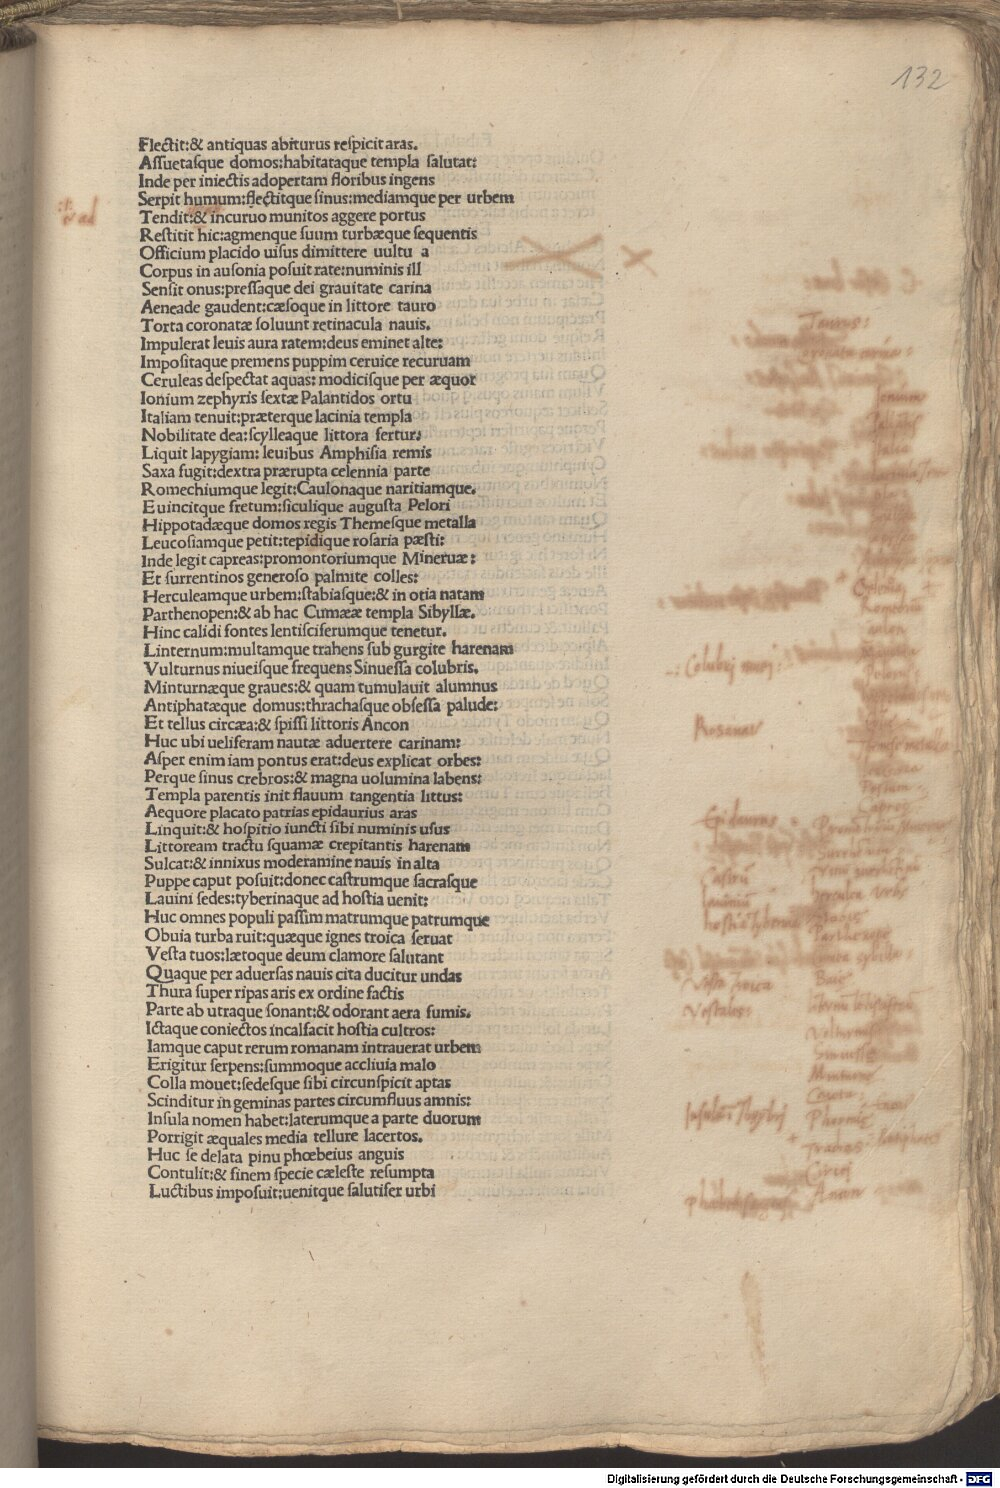 132
Flectit:& antiquas abiturus reſpicit aras.
Aſſuetaſque domos:habitataque templa ſalutat:
Inde per iniectis adopertam floribus ingens
Serpit humum:flectitque ſinus:mediamque per urbem
Tendit:& incuruo munitos aggere portus
Reſtitit hic:agmenque ſuum turbæque ſequentis
Officium placido uiſus dimittere uultu a
Corpus in auſonia poſuit rate:numinis ill
Senſit onus:preſſaque dei grauitate carina
Aeneade gaudent:cæſoque in littore tauro
Torta coronatæ ſoluunt retinacula nauis.
Impulerat leuis aura ratem:deus eminet alte:
Impoſitaque premens puppim ceruice recuruam
Ceruleas deſpectat aquas: modiciſque per æquor
Ionium zephyris ſextæ Palantidos ortu
Italiam tenuit:præterque lacinia templa
Nobilitate dea:ſcylleaque littora fertur:
Liquit Iapygiam: leuibus Amphiſia remis
Saxa fugit:dextra prærupta celennia parte
Romechiumque legit:Caulonaque naritiamque.
Euincitque fretum:ſiculique auguſta Pelori
Hippotadæque domos regis Themeſque metalla
Leucoſiamque petit:tepidique roſaria pæſti:
Inde legit capreas:promontoriumque Mineruæ:
Et ſurrentinos generoſo palmite colles:
Herculeamque urbem:ſtabiaſque:& in otia natam
Parthenopen:& ab hac Cumææ templa Sibyllæ.
Hinc calidi fontes lentiſciferumque tenetur.
Linternum:multamque trahens ſub gurgite harenam
Vulturnus niueiſque frequens Sinueſſa colubris.
Minturnæque graues:& quam tumulauit alumnus
Antiphatæque domus:thrachaſque obſeſſa palude:
Et tellus circæa:& ſpiſſi littoris Ancon
Huc ubi ueliferam nautæ aduertere carinam:
Aſper enim iam pontus erat:deus explicat orbes:
Perque ſinus crebros:& magna uolumina labens:
Templa parentis init flauum tangentia littus:
Aequore placato patrias epidaurius aras
Linquit:& hoſpitio iuncti ſibi numinis uſus
Littoream tractu ſquamæ crepitantis harenam
Sulcat:& innixus moderamine nauis in alta
Puppe caput poſuit:donec caſtrumque ſacraſque
Lauini ſedes:tyberinaque ad hoſtia uenit:
Huc omnes populi paſſim matrumque patrumque
Obuia turba ruit:quæque ignes troica ſeruat
Veſta tuos:lætoque deum clamore ſalutant
Quaque per aduerſas nauis cita ducitur undas
Thura ſuper ripas aris ex ordine factis
Parte ab utraque ſonant:& odorant aera fumis.
Ictaque coniectos incalfacit hoſtia cultros:
Iamque caput rerum romanam intrauerat urbem
Erigitur ſerpens:ſummoque accliuia malo
Colla mouet:ſedeſque ſibi circunſpicit aptas
Scinditur in geminas partes circumfluus amnis:
Inſula nomen habet:laterumque a parte duorum
Porrigit æquales media tellure lacertos.
Huc ſe delata pinu phœbeius anguis
Contulit:& finem ſpecie cæleſte reſumpta
Luctibus impoſuit:uenitque ſalutifer urbi
Taurus:
Colubrj niuej:
Rosariae
Epidaurus
Castrū
Lauiniū
hostia Tyberina
Vesta troica
Vestales:
Insula Thybrj
Romechiū
Parthenope
Sinuessa
Minturne
Circej
Ancon
Digitalisierung gefördert durch die Deutsche Forschungsgemeinschaft - DFG